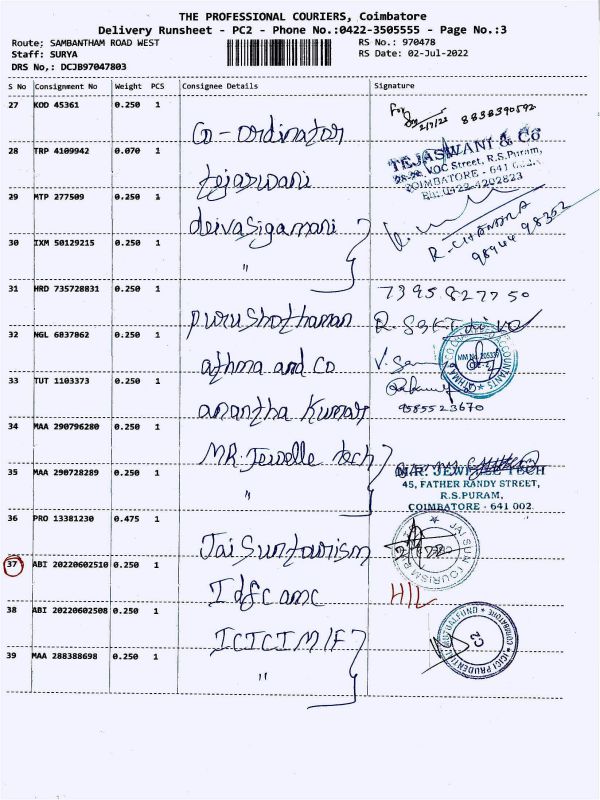 THE PROFESSIONAL COURIERS, Coimbatore
Delivery Runsheet - PC2 - Phone No.:0422-3505555 - Page No.:3
Route; SAMBANTHAM ROAD WEST
RS No.: 970478
Staff: SURYA
RS Date: 02-Jul-2022
DRS No,: DCJB97047803
S No Consignment No Weight PCS Consignee Details Signature
27 KOD 45361 0.250 1
For 2/7/22 8838390592
Co-ordinator
28 TRP 4109942 0.070 1
TEJASWANI & Co
VOC Street, R.S.Puram,
COIMBATORE - 641
Ph: 0422-4202823
tejaswani
29 MTP 277509 0.250 1
deivasigamani
R. CHANDRA
98944 98362
30 IXM 50129215 0.250 1
"
31 HRD 735728831 0.250 1
7395827750
purushothaman
32 NGL 6837862 0.250 1
athma and Co
33 TUT 1103373 0.250 1
anantha Kumar
9585523670
34 MAA 290796280 0.250 1
MR. Jewelle tech
35 MAA 290728289 0.250 1
"
M.R. JEWELLE TECH
45, FATHER RANDY STREET,
R.S.PURAM,
COIMBATORE - 641 002.
36 PRO 13381230 0.475 1
Jai Sun tourism
JAI SUN TOURISM
37 ABI 20220602510 0.250 1
Idfc amc
H/L
38 ABI 20220602508 0.250 1
ICICI M/F
ICICI PRUDENTIAL MUTUAL FUND * COIMBATORE *
39 MAA 288388698 0.250 1
"